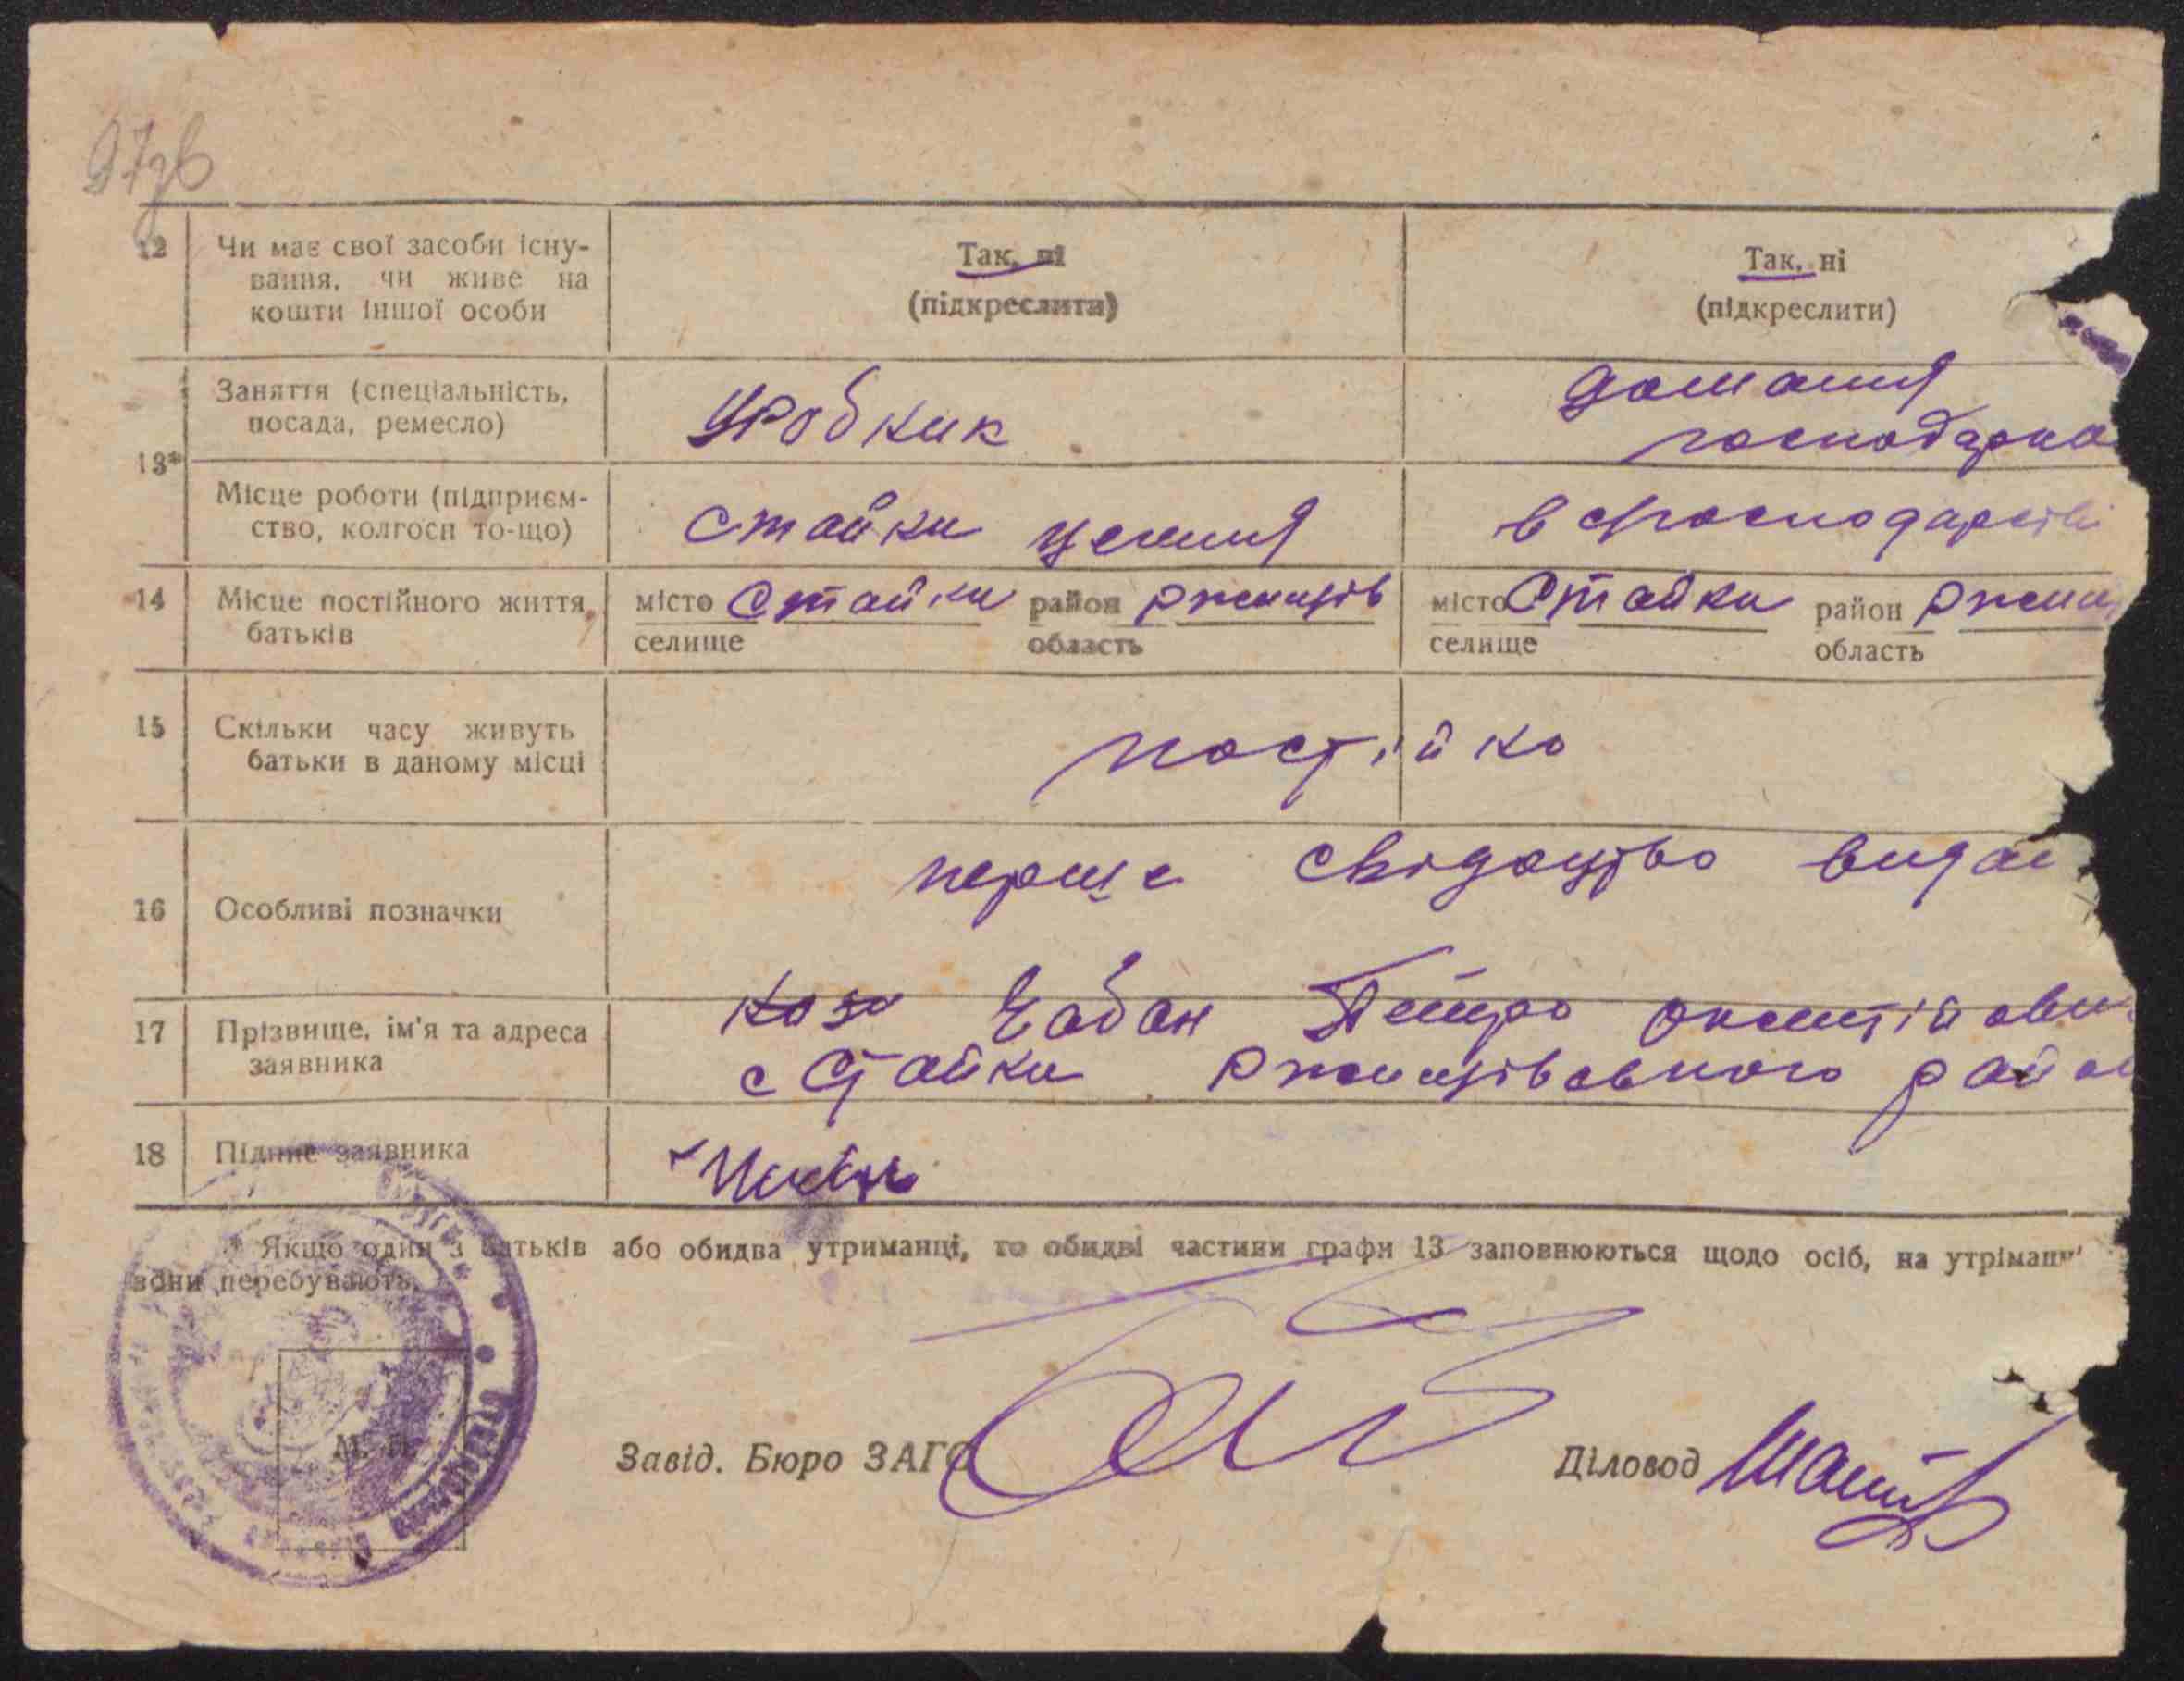 97зв
12 Чи має свої засоби існу-
вання, чи живе на
кошти іншої особи
Так, ні
(підкреслити)
Так, ні
(підкреслити)
13*
Заняття (спеціальність,
посада, ремесло)
домашня
господарка
Місце роботи (підприєм-
ство, колгосп то-що)
Стайки
в господарстві
14 Місце постійного життя
батьків
місто Стайки район Ржищів
селище область
місто Стайки район Ржищ
селище область
15 Скільки часу живуть
батьки в даному місці
постійно
16 Особливі позначки
перше свідоцтво видан
17 Прізвище, ім'я та адреса
заявника
Чабан Петро
с Стайки Ржищівського район
18 Підпис заявника
* Якщо один з батьків або обидва утриманці, то обидві частини графи 13 заповнюються щодо осіб, на утріманні
вони перебувають.
М. П.
Завід. Бюро ЗАГС
Діловод